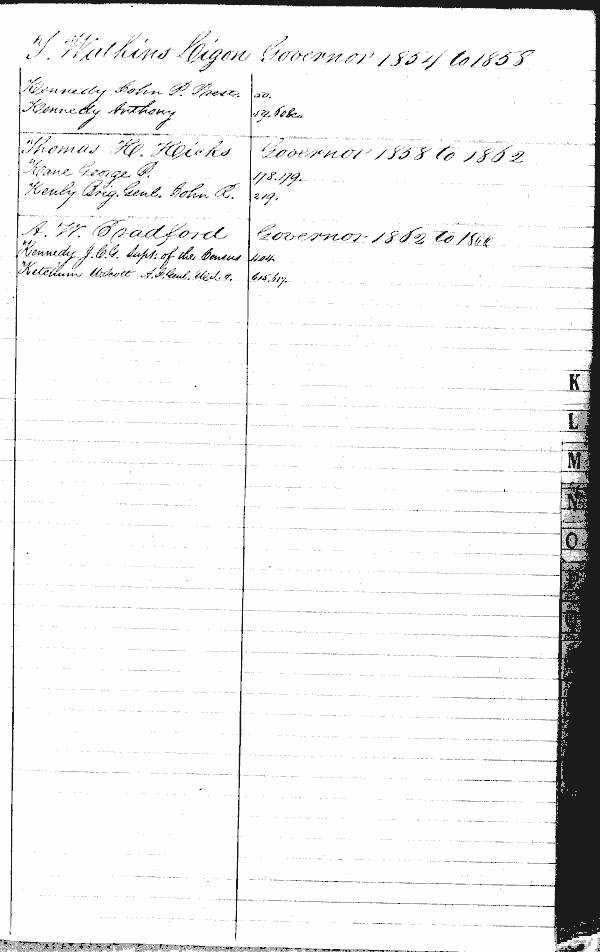 T. Watkins Ligon Governor 1854 to 1858
Kennedy John P. Prest. 50.
Kennedy Anthony 59.
Thomas H. Hicks Governor 1858 to 1862
Kane George P. 178.179.
Kenly Brig. Genl. John R. 219.
A. W. Bradford Governor 1862 to
Kennedy J.C.G. Supt. of the Census 404.
Ketchum A. Genl. U.S.A. 615.617.
K
L
M
N
O